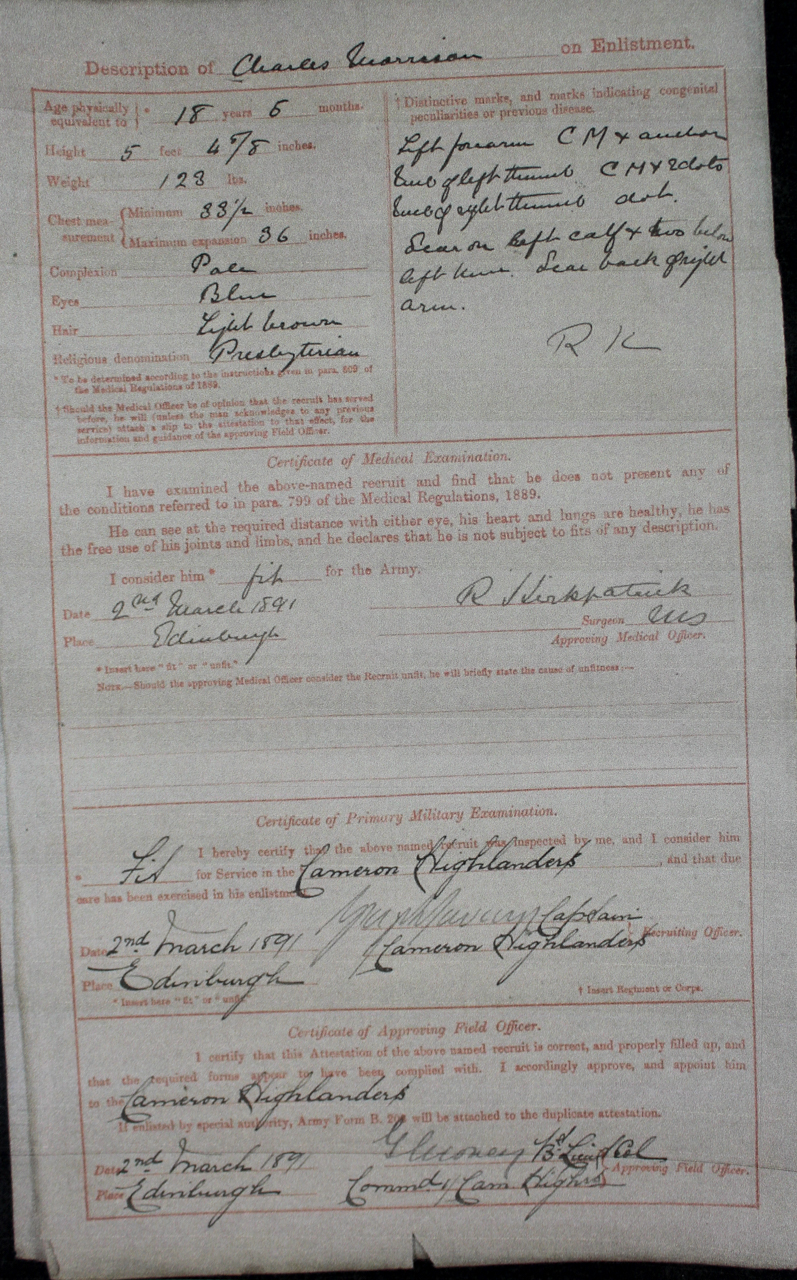 Description of Charles Morrison on Enlistment.
Age physically equivalent to * 18 years 5 months.
Height 5 feet 4 5/8 inches.
Weight 123 lbs.
Chest measurement { Minimum 33 1/2 inches.
Maximum expansion 36 inches.
Complexion Pale
Eyes Blue
Hair Light brown
Religious denomination Presbyterian
* To be determined according to the instructions given in para. 809 of
the Medical Regulations of 1889.
† Should the Medical Officer be of opinion that the recruit has served
before, he will (unless the man acknowledges to any previous
service) attach a slip to the attestation to that effect, for the
information and guidance of the approving Field Officer.
† Distinctive marks, and marks indicating congenital
peculiarities or previous disease.
Left forearm C M & anchor
of left thumb C M & 2 dots
of right thumb dot.
Scar on left calf & two below
left knee. Scar back of right
arm.
R K
Certificate of Medical Examination.
I have examined the above-named recruit and find that he does not present any of
the conditions referred to in para. 799 of the Medical Regulations, 1889.
He can see at the required distance with either eye, his heart and lungs are healthy, he has
the free use of his joints and limbs, and he declares that he is not subject to fits of any description.
I consider him * fit for the Army.
Date 2nd March 1891
R Kirkpatrick
Place Edinburgh
Surgeon
Approving Medical Officer.
* Insert here "fit" or "unfit."
NOTE.—Should the approving Medical Officer consider the Recruit unfit, he will briefly state the cause of unfitness:—
Certificate of Primary Military Examination.
I hereby certify that the above named recruit was inspected by me, and I consider him
* Fit for Service in the Cameron Highlanders, and that due
care has been exercised in his enlistment
Captain
Date 2nd March 1891 Cameron Highlanders } Recruiting Officer.
Place Edinburgh
* Insert here "fit" or "unfit"
† Insert Regiment or Corps.
Certificate of Approving Field Officer.
I certify that this Attestation of the above named recruit is correct, and properly filled up, and
that the required forms appear to have been complied with. I accordingly approve, and appoint him
to the Cameron Highlanders
If enlisted by special authority, Army Form B. 203 will be attached to the duplicate attestation.
Bt Lieut Col
Date 2nd March 1891 } Approving Field Officer.
Place Edinburgh Commdg Cam Highrs